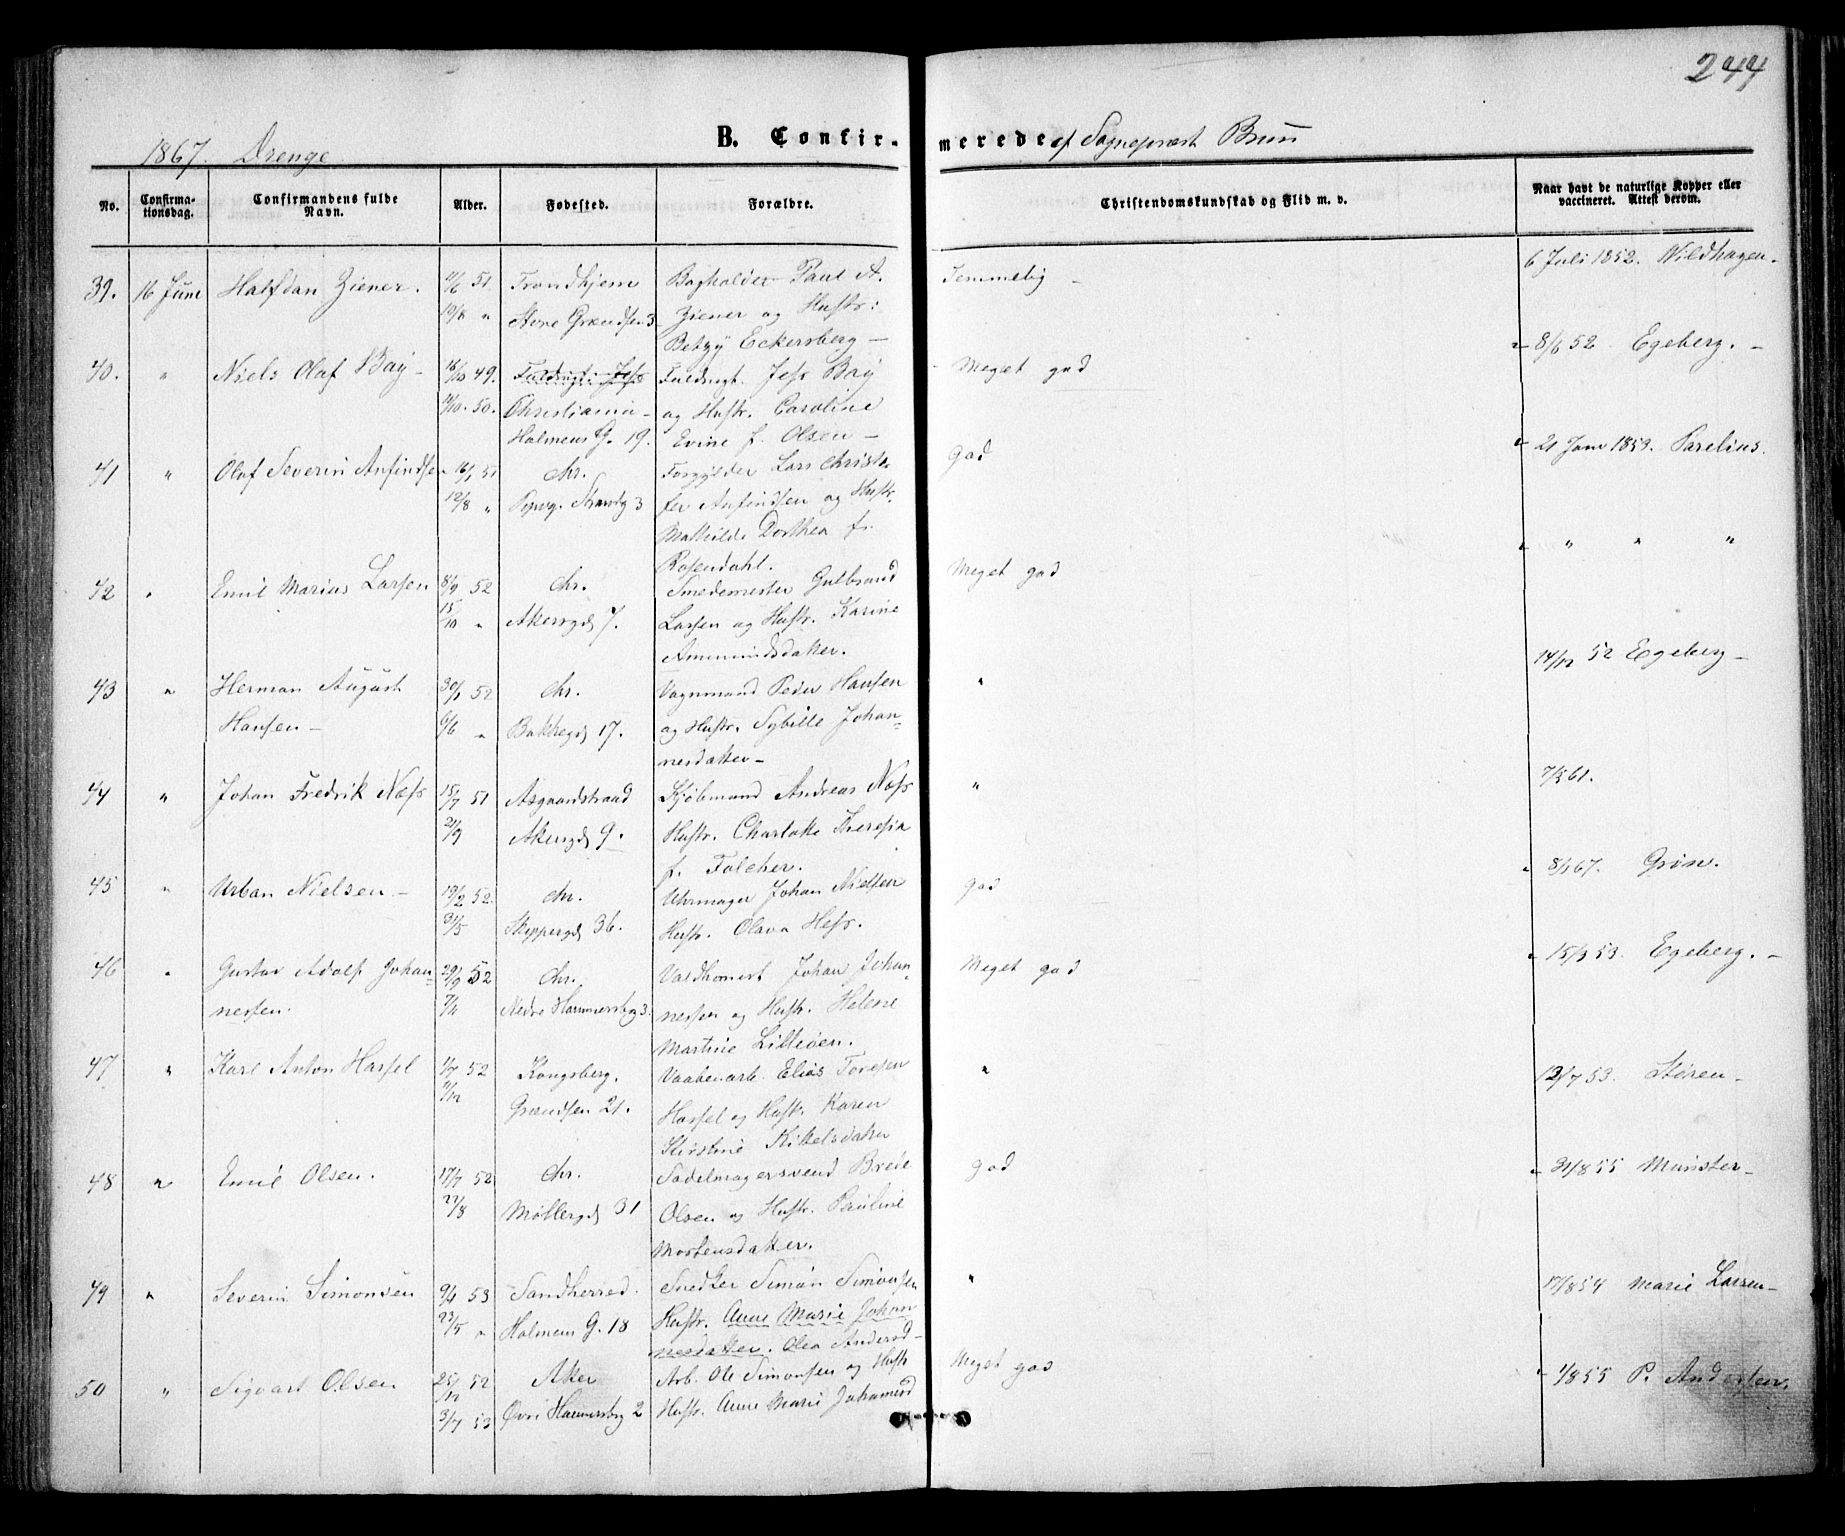 244
1867. Drenge
B. Confirmerede af Sognepræst Brun
No.
Confirmationsdag.
Confirmandens fulde Navn.
Alder.
Fødested.
Forældre.
Christendomskundskab og Flid m. v.
Naar havt de naturlige Kopper eller vaccineret. Attest derom.
39. 16 Juni Halfdan Ziener. 51 Trondhjem Bogholder Paul A. Temmelig - 6 Juli 1852. Wildhagen.
19/8 " Store Grændsen 3 Ziener og Hustr:
Betzy Eckersberg -
40. " Niels Olaf Bay - 49. Fuldmgt. Jess Fuldmgt. Jess Bay Meget god 8/6 52 Egeberg. -
50. Christiania - og Hustr. Caroline
Holmens G. 19. Evine f. Olsen -
41 " Olaf Severin Anfindsen 16/1 51 Chr. Forgylder Lars Christo- God 21 Janr 1853. Parelius.
12/8 " Pipvg. Strandg 3 fer Anfindsen og Hustr.
Mathilde Dorthea f.
Rosendahl.
42 " Emil Marius Larsen 8/9 52 Chr. Smedemester Gulbrand Meget god " " "
15/10 " Akersgd 7. Larsen og Hustr. Karine
Ammundsdatter.
43 " Herman August 30/1 52 Chr. Vognmand Peder Hansen " 14/12 52 Egeberg -
Hansen - 6/6 " Bakkegd 17. og Hustr. Sybille Johan-
nesdatter -
44 " Johan Fredrik Næss 15/7 51 Aasgaardstrand Kjøbmand Andreas Næss " 7/5 61.
21/9 Akersgd 9. Hustr. Charlotte Theresia
f. Falcher.
45 " Urban Nielsen - 19/2 52. Chr. Uhrmager Johan Nielsen God 8/1 67. Grøn.
31/5 Skippergd 36. Hustr. Olava Hess.
46 " Gustav Adolf Johan- 29/9 52 Chr. Valdhornist Johan Johan- Meget god 15/3 53. Egeberg. -
nessen. 7/11 Nedre Hammersbg 3. nessen og Hustr. Helene
Martine Lilleøen.
47 " Karl Anton Hassel 1/7 52 Kongsberg. Vaabenarb. Elias Toresen " 12/7 53. Støren -
Grændsen 21. Hassel og Hustr. Karen
Kirstine Kittelsdatter
48 " Emil Olsen. 17/7 52 Chr. Sadelmagersvend Brede God 31/8 55 Münster -
22/8 Møllergd 31 Olsen og Hustr. Pauline
Mortensdatter.
49 " Severin Simonsen 9/4 53 Sandherred. Snedker Simon Simonsen " 17/8 54 Marie Larsen -
23/5 " Holmens G. 18 Hustr. Anne Marie Johan
nesdatter. Olea Andersd -
50 " Sigvart Olsen 25/12 52 Aker Arb. Ole Simonsen og Hustr Meget god 1/8 55 P. Andersen.
3/7 53 Øvre Hammersbg 2 Hustr. Anne Marie Johannesd